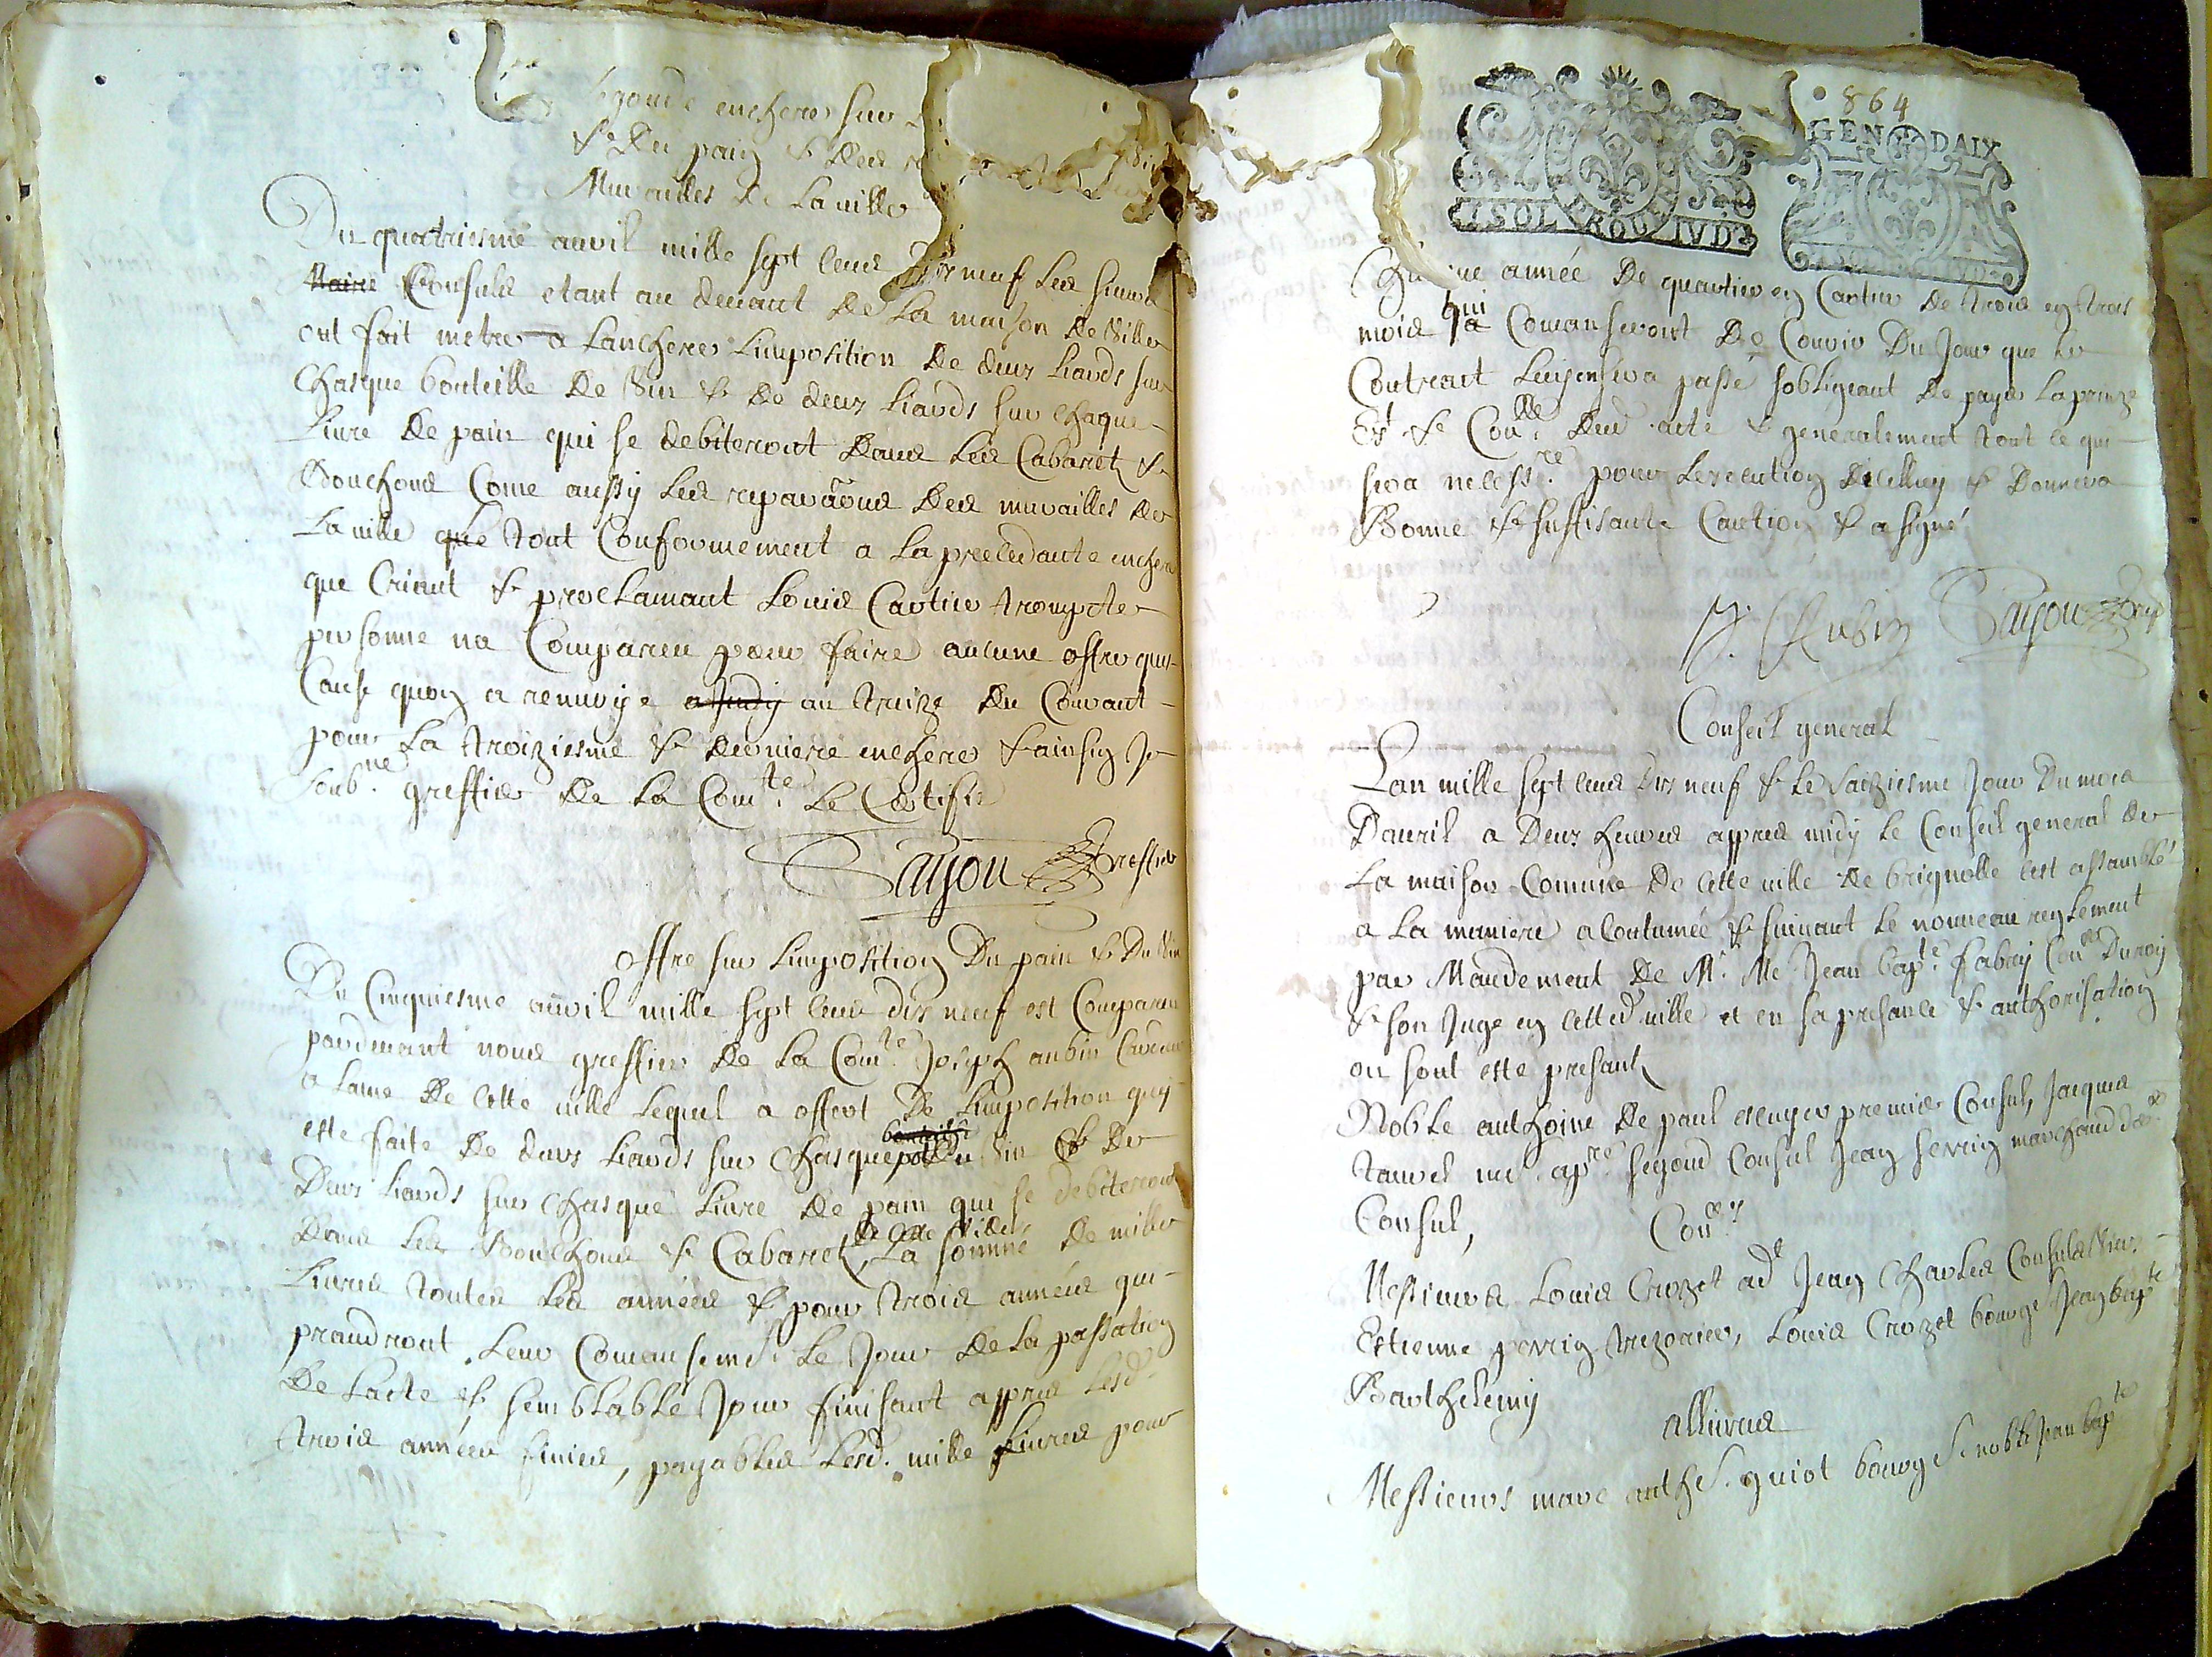 segonde enchere sur
& Du pain & Des
Murailles de La ville
Du quatriesme avril mille sept cens dix neuf Les sieurs
Maire Consuls etant au devant De La maison De Ville
ont fait metre a Lanchere Limposition De deux Liards sur
Chasque bouteille De Vin & De deux Liards sur Chaque
Livre De pain qui se debiteront Dans Les Cabaretz &
Bouchons Come aussy Les reparaôns Des murailles De
La ville que tout Conformement a La precedante enchere
que Criant & proclamant Louis Cartier trompete
personne na Comparu pour faire aucune offre qui
Cause quon a renvoye a judy au treize Du Courant
pour La troiziesme & derniere enchere & ainsin Je
soub.ne greffier De La Com.te Le Certifie
Saison Greffier
offre sur Limposition Du pain & Du Vin
Du Cinquiesme avvil mille sept cens dix neuf est Comparu
pardevant nous greffier De La Com.te Joseph aubin
a Laine De Cette ville Lequel a offert De Limposition quy
este faite De deux Liards sur Chasque bouteille pot Du Vin & De
Deux Liards sur Chasque Livre De pain qui se debiteront
Dans Les Bouchons & Cabaretz De Cette Ville La somme De mille
Livres toutes Les années & pour trois années qui
prandront Leur Comansemt Le Jour De La passation
De Lacte & semblable Jour finisant appres Lesd.
trois années finies, payables Lesd. mille Livres pour
864
GEN DAIX
1 SOL ROVL IVD
Chaque année De quartier en Cartier De trois en trois
mois qui Comanseront De Courir Du Jour que Le
Contract Luy en sera passé sobligeant De payer La prinze
Ext & Con.lle Dud. acte & generalement tout Ce qui
sera necess.re pour Lexecution Dicelluy & Donnera
Bonne & suffisante Caution & a signé
J. Aubin Saison
Conseil general
Lan mille sept cens Dix neuf & Le saiziesme Jour Du mois
Davril a Deux heures appres midy Le Conseil general De
La maison Comune De Cette ville De brignolle cest assamblé
a La maniere acoutumée & suivant Le nouveau reglement
par Mandement De Mr. Me Jean bap.te fabry Con.er Du roy
& son Juge en Cetted. ville et en sa presance & authorisation
ou sont este presantz
Noble anthoine De paul escuyer premier Consul, Jacques
tauvel me ap.re segond Consul Jean serrin marchand der.
Consul,
Con.ers
Messieurs Louis Crozet ad.t Jean Charles Consuls Vieux
Estienne perrin trezorier, Louis Crozet bourgs Jean bap.te
Barthelemy
allivres
Messieurs marc anth.e S. guiot bourg S. noble Jean bap.te